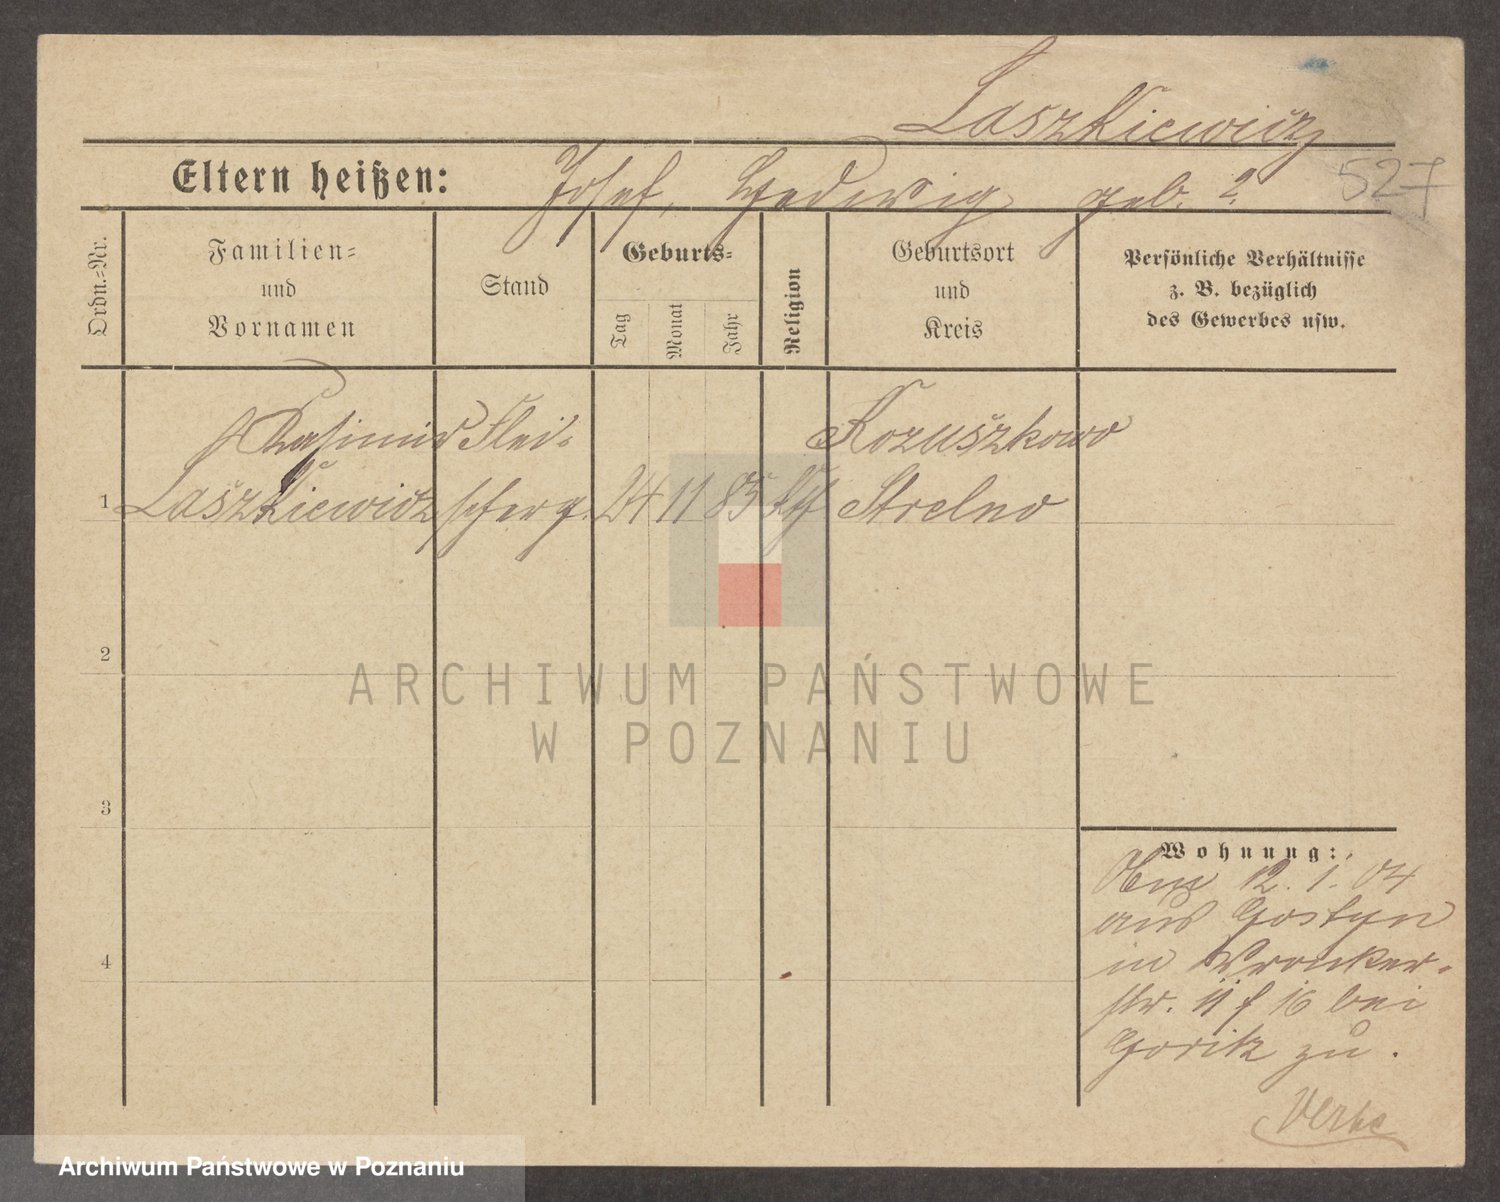 Laszkiewicz
Eltern heißen: Josef, Hedwig geb. ?
527
Ordn.=Nr.
Familien=
und
Vornamen
Stand
Geburts=
Tag
Monat
Jahr
Religion
Geburtsort
und
Kreis
Persönliche Verhältnisse
z. B. bezüglich
des Gewerbes usw.
Kasimir Flei- Kozuszkowo
1 Laszkiewicz scherg. 24 11 85 Strelno
2
3
4
Wohnung:
12. 1. 04
aus Gostyn
in Wronker-
str. 11 f 16 bei
Goritz zu.
ARCHIWUM PAŃSTWOWE
W POZNANIU
Archiwum Państwowe w Poznaniu